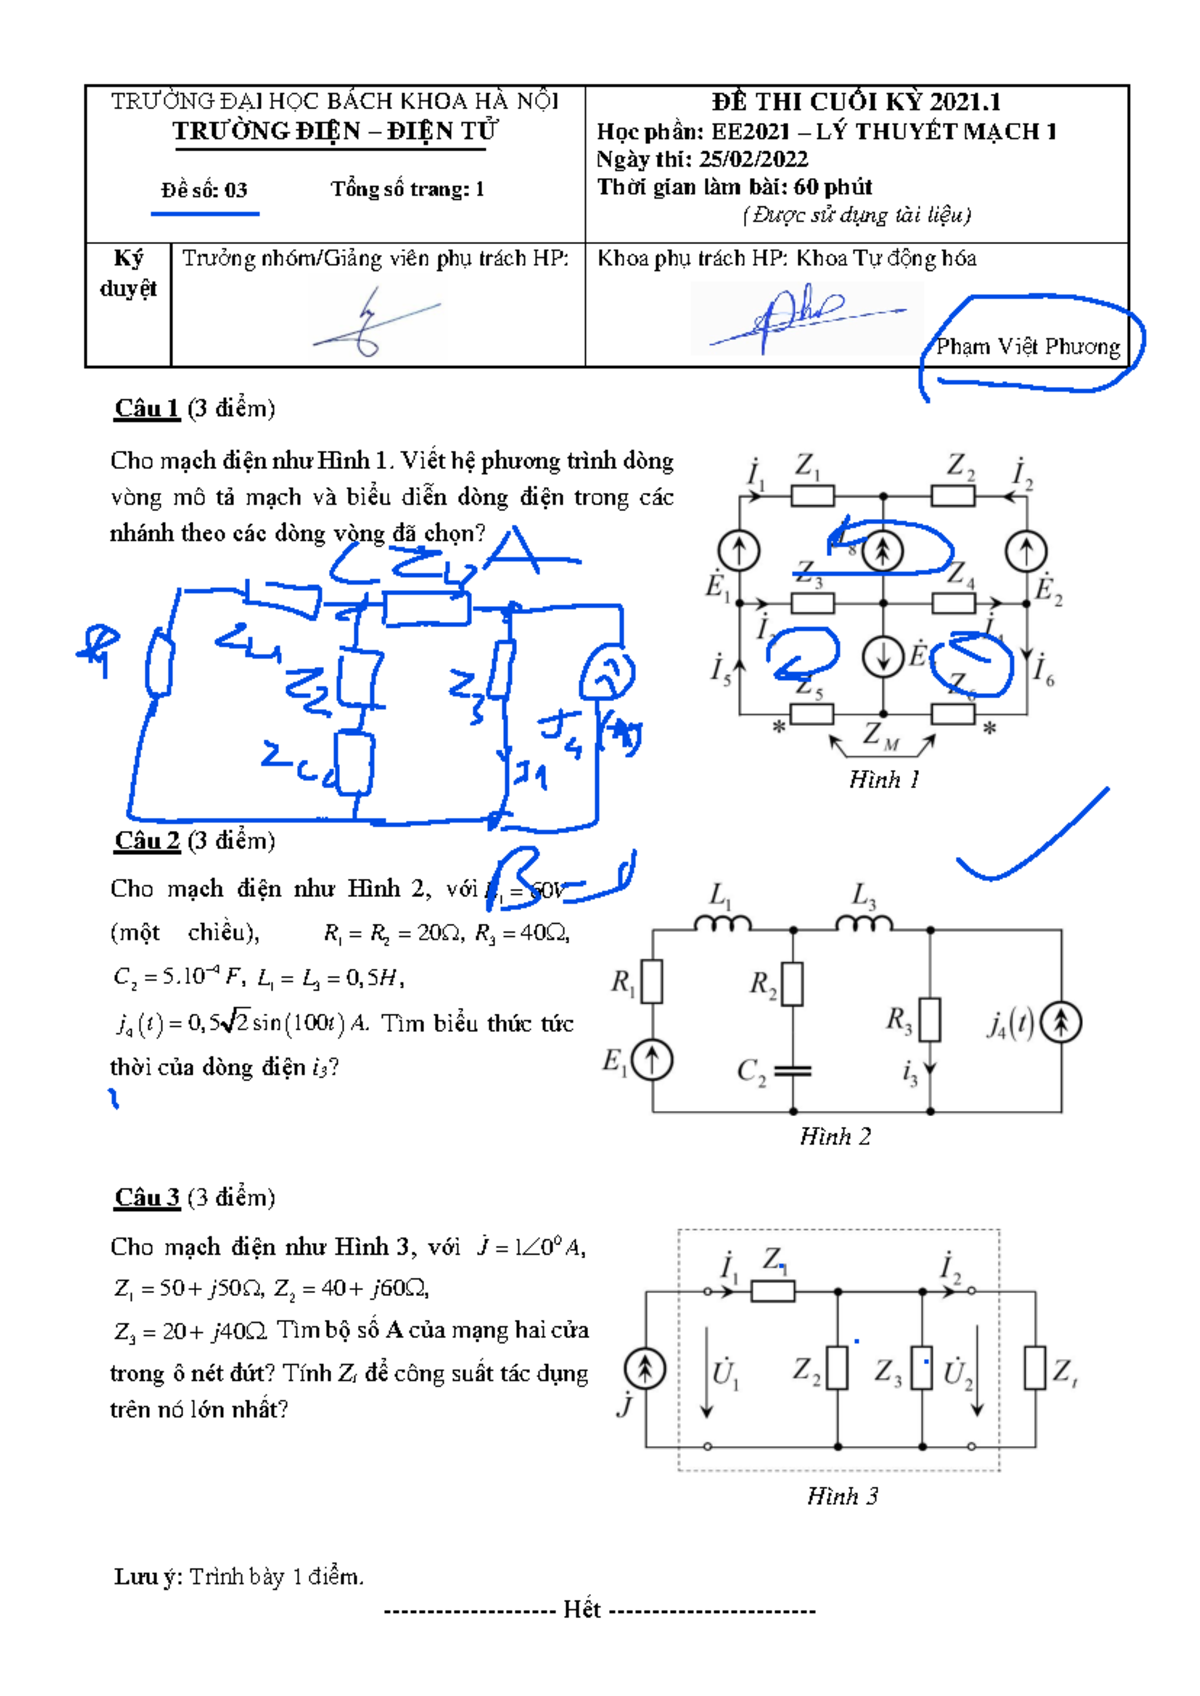 TRƯỜNG ĐẠI HỌC BÁCH KHOA HÀ NỘI
TRƯỜNG ĐIỆN – ĐIỆN TỬ
Đề số: 03 Tổng số trang: 1
ĐỀ THI CUỐI KỲ 2021.1
Học phần: EE2021 – LÝ THUYẾT MẠCH 1
Ngày thi: 25/02/2022
Thời gian làm bài: 60 phút
(Được sử dụng tài liệu)
Ký duyệt
Trưởng nhóm/Giảng viên phụ trách HP:
Khoa phụ trách HP: Khoa Tự động hóa
Phạm Việt Phương
Câu 1 (3 điểm)
Cho mạch điện như Hình 1. Viết hệ phương trình dòng
vòng mô tả mạch và biểu diễn dòng điện trong các
nhánh theo các dòng vòng đã chọn?
İ₁ Z₁ Z₂ İ₂
Ė₁ Z₃ Z₄ Ė₂
İ₅ Z₅ Ė İ₆
* Z_M *
Hình 1
C Z_L A
Z_L1 Z₂ Z₃ J₄
Z_C2 I1
B
Câu 2 (3 điểm)
Cho mạch điện như Hình 2, với = 60V
(một chiều), R₁ = R₂ = 20Ω, R₃ = 40Ω,
C₂ = 5.10⁻⁴ F, L₁ = L₃ = 0,5H,
j₄(t) = 0,5√2 sin(100t) A. Tìm biểu thức tức
thời của dòng điện i₃?
L₁ L₃
R₁ R₂ R₃ j₄(t)
E₁ C₂ i₃
Hình 2
Câu 3 (3 điểm)
Cho mạch điện như Hình 3, với J̇ = 1∠0⁰ A,
Z₁ = 50 + j50Ω, Z₂ = 40 + j60Ω,
Z₃ = 20 + j40Ω. Tìm bộ số A của mạng hai cửa
trong ô nét đứt? Tính Zₜ để công suất tác dụng
trên nó lớn nhất?
İ₁ Z₁ İ₂
J̇ U̇₁ Z₂ Z₃ U̇₂ Zₜ
Hình 3
Lưu ý: Trình bày 1 điểm.
-------------------- Hết ------------------------